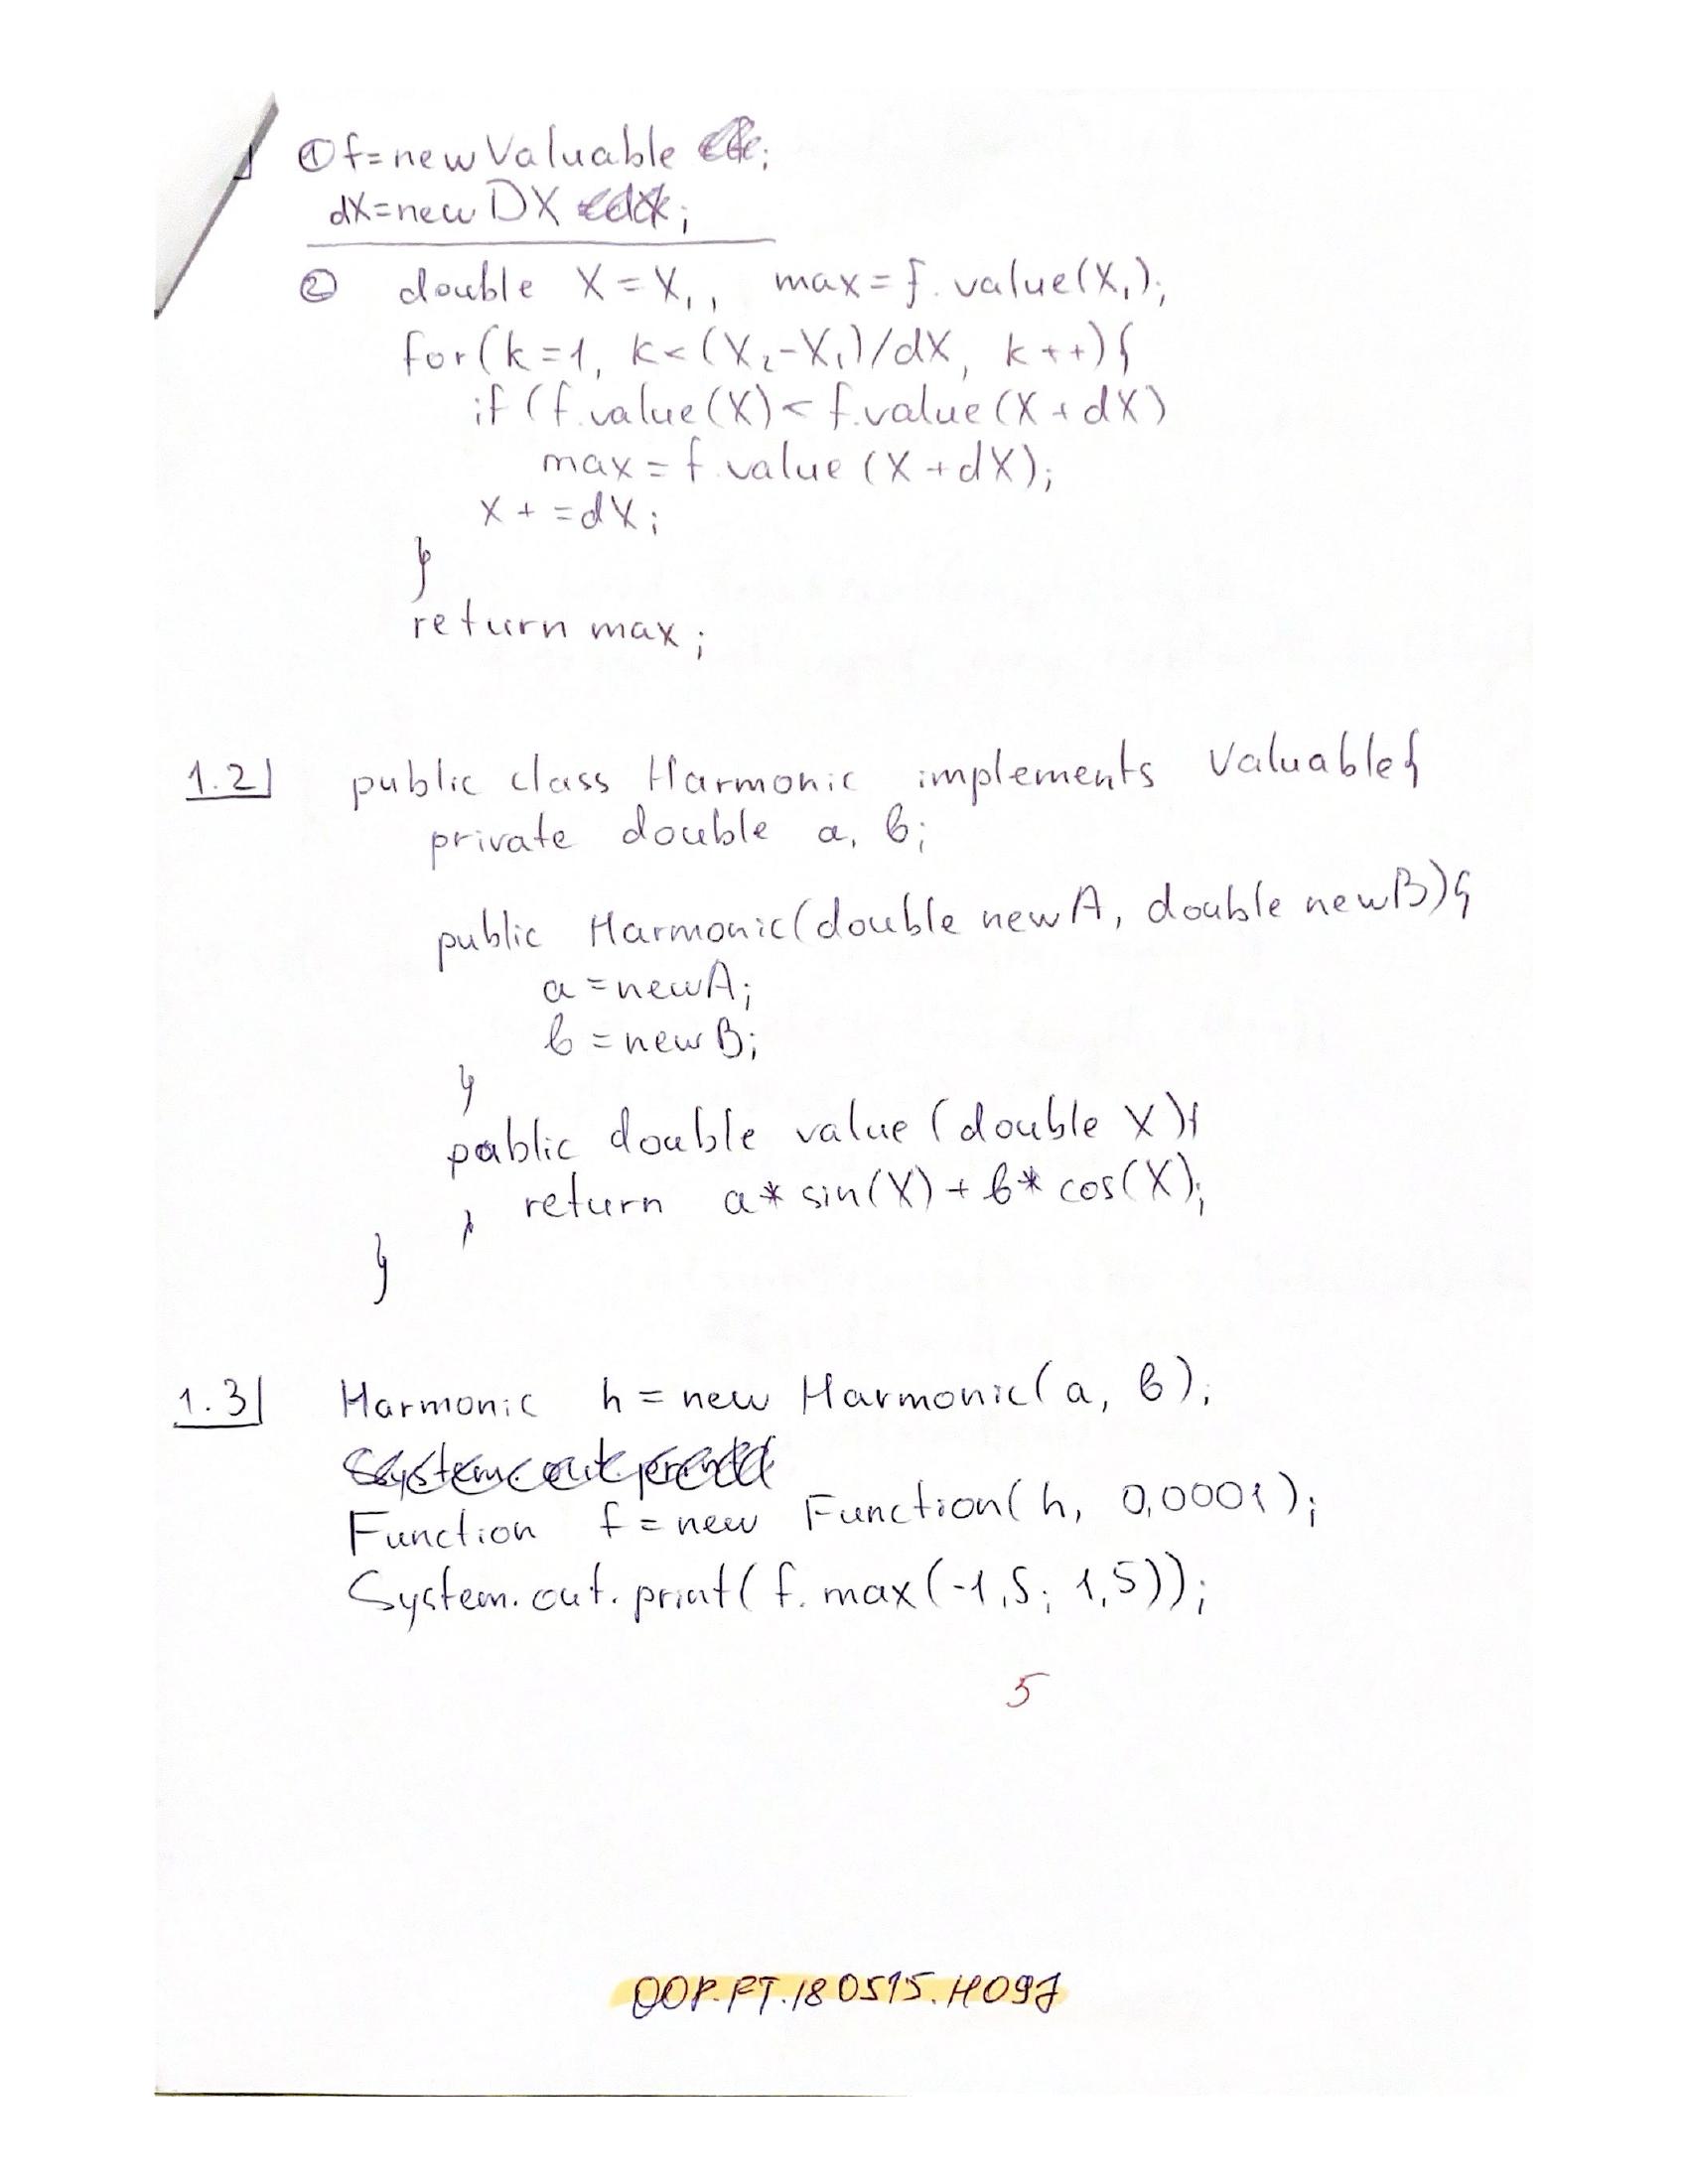 ① f=new Valuable ;
dX=new DX ;
② double X = X₁, max = f.value(X₁);
for(k=1, k<(X₂-X₁)/dX, k++){
if (f.value(X) < f.value(X+dX)
max = f.value(X+dX);
X += dX;
}
return max;
1.2 public class Harmonic implements Valuable{
private double a, b;
public Harmonic(double newA, double newB){
a = newA;
b = newB;
}
public double value(double X){
return a* sin(X) + b* cos(X);
}
}
1.3 Harmonic h = new Harmonic(a, b);
Function f = new Function(h, 0,0001);
System.out.print(f.max(-1,5; 1,5));
5
OOP.PT.180515.H097